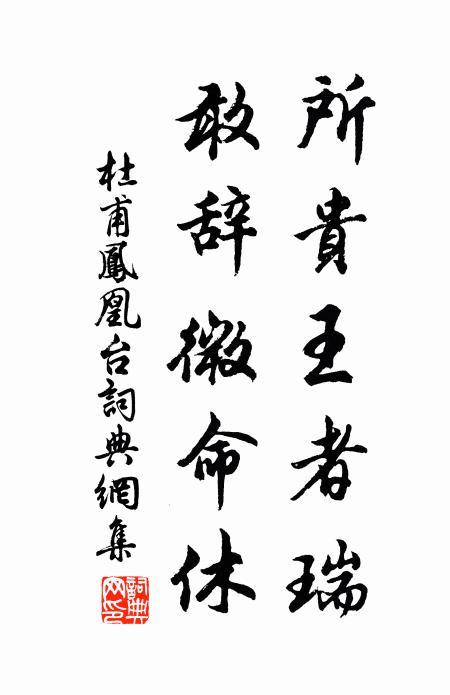 所貴王者瑞
敢辞微命休
杜甫鳳凰台詞典網集
詞典網印